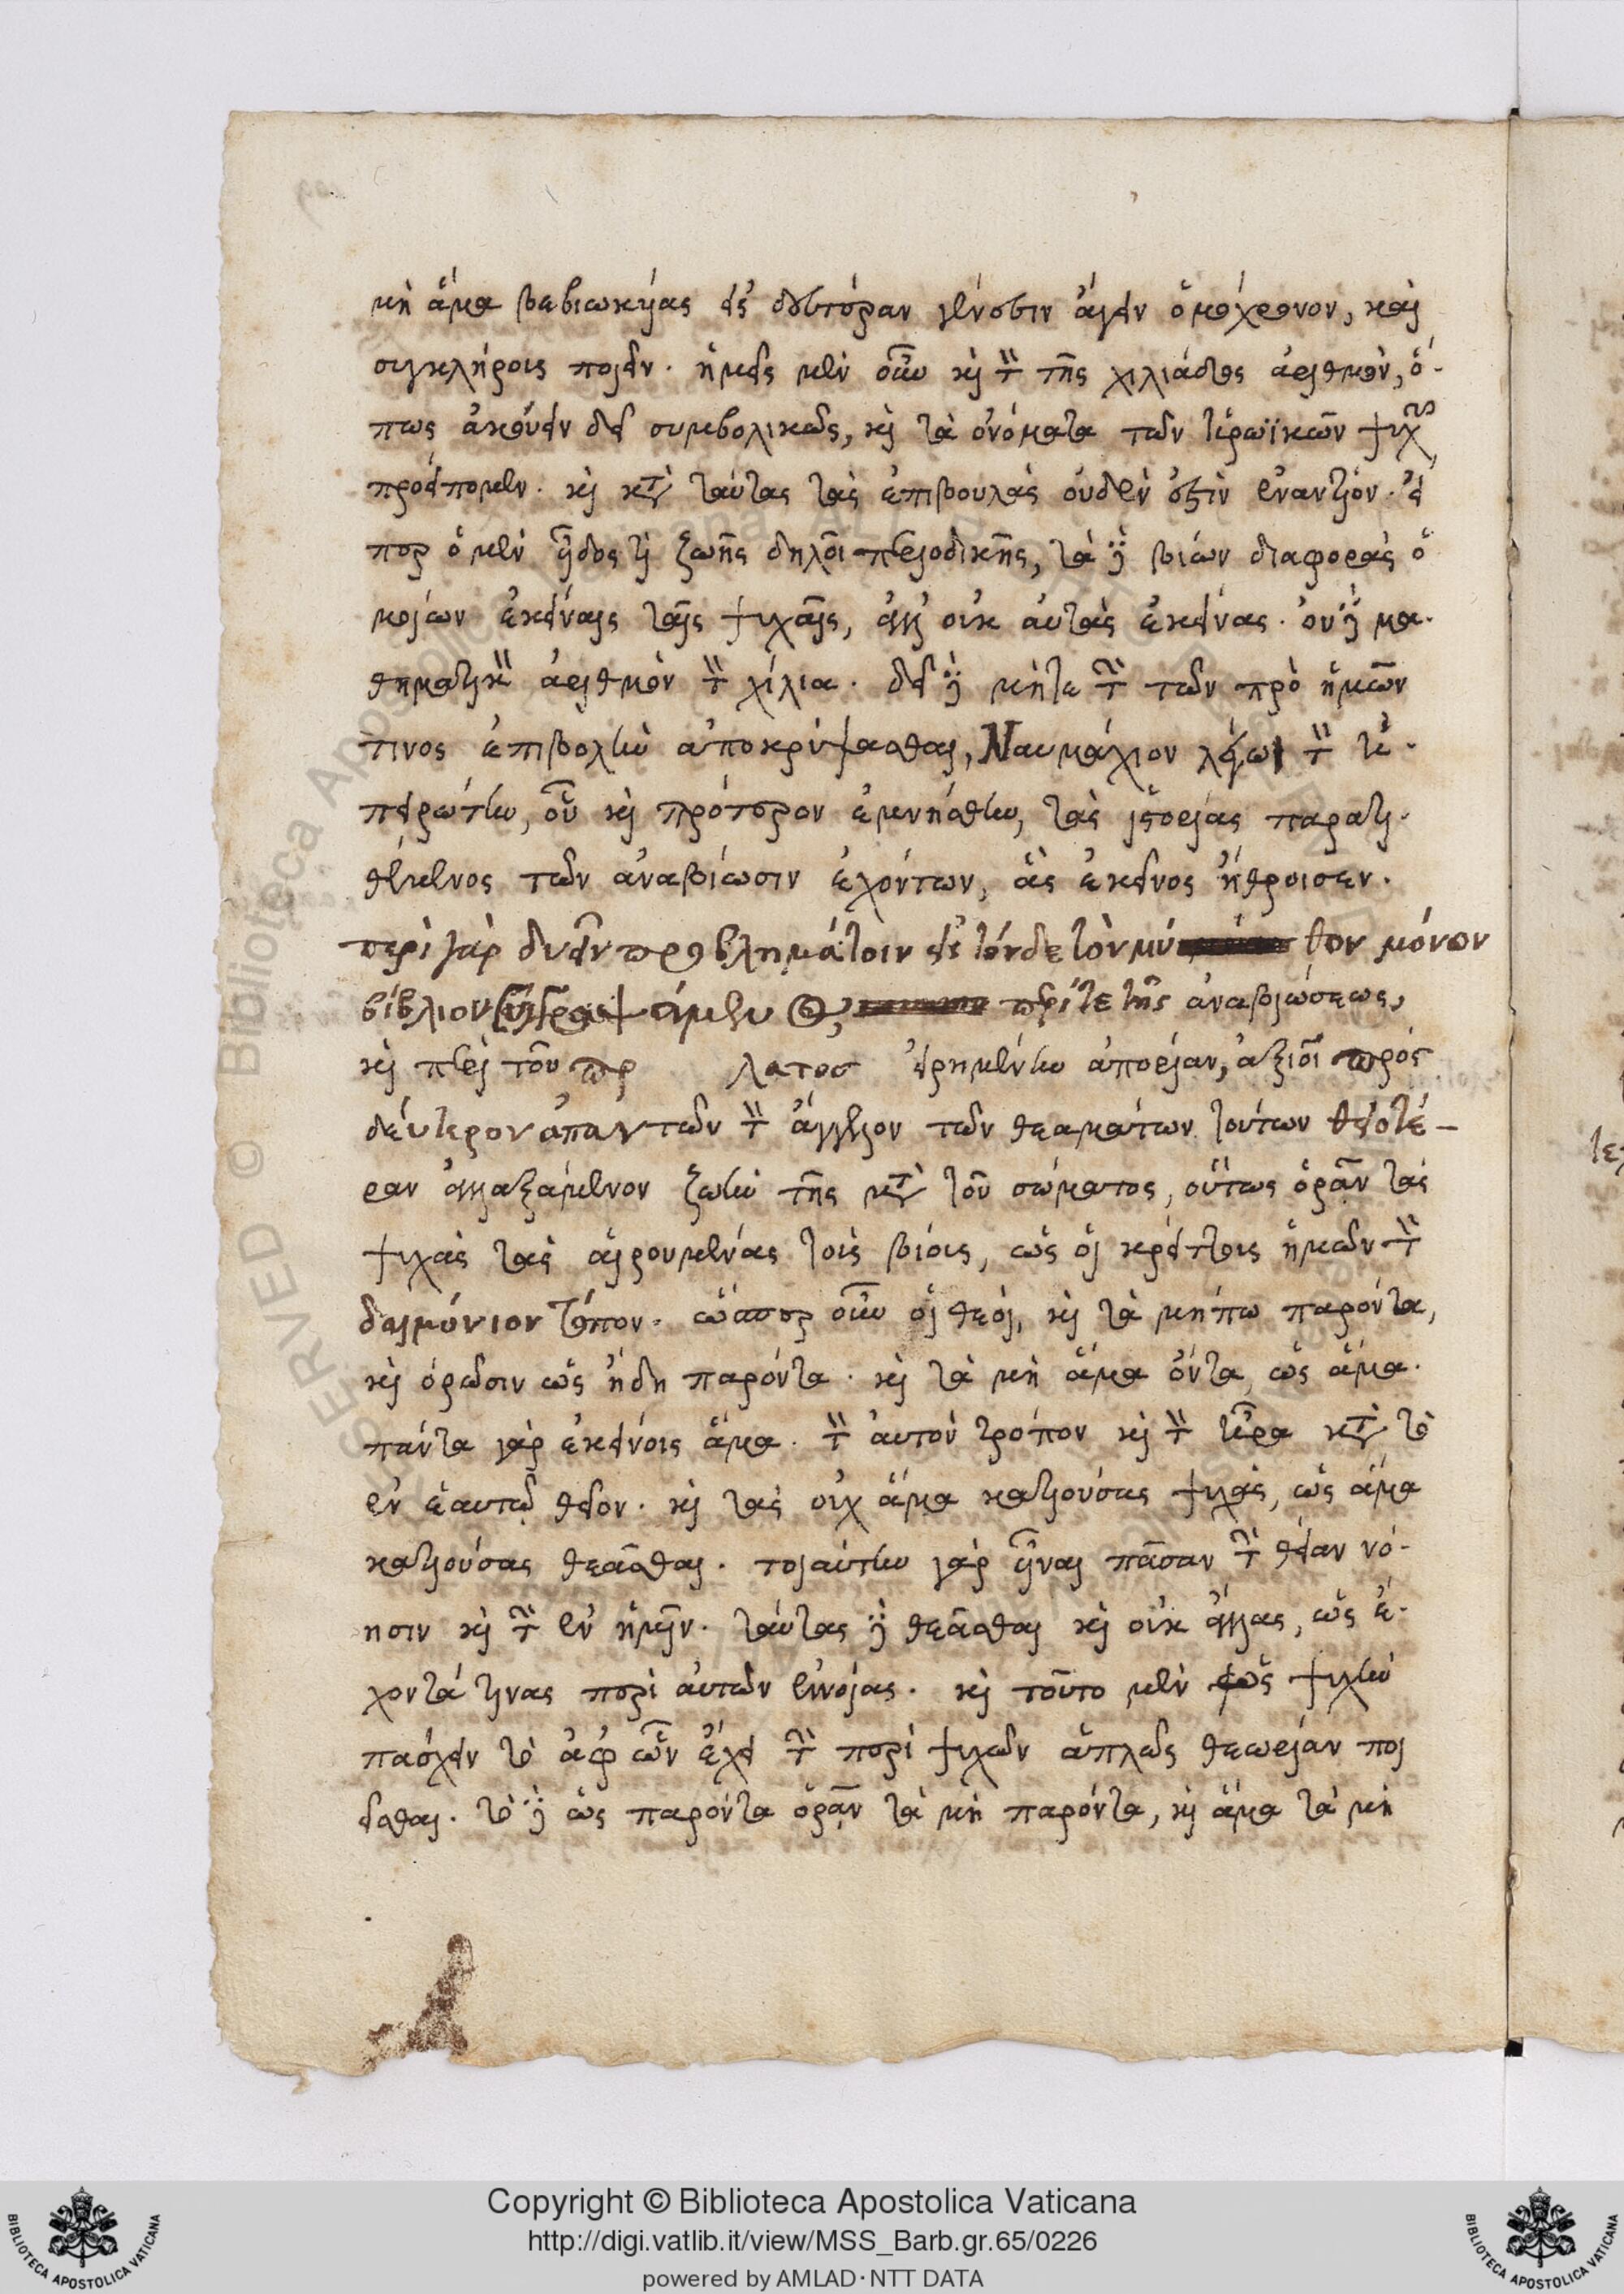 μὴ ἅμα βεβιωκυίας εἰς δευτέραν γένεσιν ἄγειν ὁμόχρονον, καὶ
συγκλήροις ποιεῖν. ἡμεῖς μὲν οὖν καὶ τὸν τῆς χιλιάδος ἀριθμὸν, ὅ-
πως ἀκούειν δεῖ συμβολικῶς, καὶ τὰ ὀνόματα τῶν ἡρωϊκῶν ψυχῶν
προείπομεν. καὶ κατὰ ταύτας τὰς ἐπιβουλὰς οὐδέν ἐστιν ἐναντίον. εἴ
περ ὁ μὲν εἶδος τι ζωῆς δηλοῖ περιοδικῆς, τὰ δὲ βιών διαφορὰς ὁ
μοίων ἐκείναις ταῖς ψυχαῖς, ἀλλ' οὐκ αὐτὰς ἐκείνας. οὐ δὲ μα-
θηματικὸν ἀριθμὸν τὸν χίλια. δεῖ δὲ μήτε τὴν τῶν πρὸ ἡμῶν
τινος ἐπιβολὴν ἀποκρύψασθαι, Ναυμάχιον λέγω τὸν ἠ-
πειρώτην, οὗ καὶ πρότερον ἐμνήσθην, τὰς ἱστορίας παρατι-
θέμενος τῶν ἀναβίωσιν ἐχόντων, ἃς ἐκεῖνος ἤθροισεν.
περὶ γὰρ δυεῖν προβλημάτοιν εἰς τόνδε τὸν μύ θον μόνον
βίβλιον περί τε τῆς ἀναβιώσεως,
καὶ περὶ τοῦ πρ λατος εἰρημένην ἀπορίαν, ἀξιοῖ πρός
δεύτερον ἁπάντων τὸν ἄγγελον τῶν θεαμάτων τούτων θειοτέ-
ραν ἀλλαξάμενον ζωὴν τῆς μετὰ τοῦ σώματος, οὕτως ὁρᾷν τὰς
ψυχὰς τὰς αἱρουμένας τοὺς βίους, ὡς οἱ κρείττους ἡμῶν τὸν
δαιμόνιον τόπον. ὥσπερ οὖν οἱ θεοὶ, καὶ τὰ μήπω παρόντα,
καὶ ὁρῶσιν ὡς ἤδη παρόντα. καὶ τὰ μὴ ἅμα ὄντα, ὡς ἅμα.
πάντα γὰρ ἐκείνοις ἅμα. τὸν αὐτὸν τρόπον καὶ τὸν ἦρα κατὰ τὸ
ἐν ἑαυτῷ θεῖον. καὶ τὰς οὐχ ἅμα κατιούσας ψυχάς, ὡς ἅμα
κατιούσας θεᾶσθαι. τοιαύτην γὰρ εἶναι πᾶσαν τὴν θείαν νό-
ησιν καὶ τὴν ἐν ἡμῖν. ταύτας δὲ θεᾶσθαι καὶ οὐκ ἄλλας, ὡς ἔ-
χοντά τινας περὶ αὐτῶν ἐννοίας. καὶ τοῦτο μὲν ὡς ψυχὴν
πάσχειν τὸ ἀφ ὧν ἔχει τὴν περὶ ψυχῶν ἁπλῶς θεωρίαν ποι
εῖσθαι. τὸ δὲ ὡς παρόντα ὁρᾷν τὰ μὴ παρόντα, καὶ ἅμα τὰ μὴ
Copyright © Biblioteca Apostolica Vaticana
http://digi.vatlib.it/view/MSS_Barb.gr.65/0226
powered by AMLAD·NTT DATA